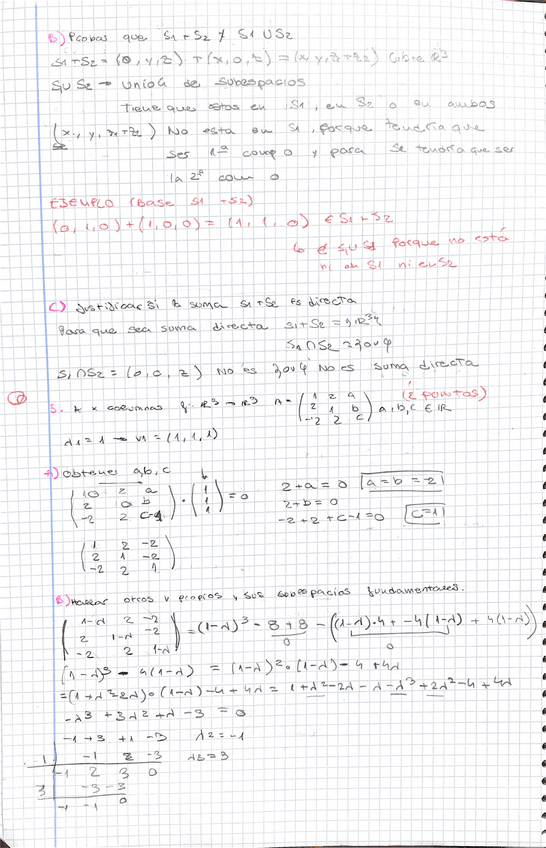 B) Probar que S1+S2 ≠ S1 ∪ S2
S1+S2 = (0, y, z) + (x, 0, z) = (x, y, z+z2) cubre R³
S1∪S2 → Unión de subespacios
Tiene que estas en S1, en S2 o en ambos
(x, y, z1+z2) No esta en S1, porque tendría que
ser 1ª comp 0 y para S2 tendría que ser
la 2ª com 0
EJEMPLO (Base S1 +S2)
(0, 1, 0) + (1, 0, 0) = (1, 1, 0) ∈ S1+S2
↳ ∉ S1∪S2 porque no está
ni en S1 ni en S2
C) Justificar si la suma S1+S2 es directa
Para que sea suma directa S1+S2 =
S1 ∩ S2 = {0}
S1 ∩ S2 = (0, 0, z) No es {0} No es suma directa
5. A x columnas f: R³ → R³ A = (1 2 a / 2 1 b / -2 2 c) a, b, c ∈ R (2 puntos)
λ1 = 1 → v1 = (1, 1, 1)
A) Obtener a, b, c
(0 2 a / 2 0 b / -2 2 c-1) · (1 / 1 / 1) = 0
2+a = 0 a = b = -2
2+b = 0
-2+2+c-1 = 0 c=1
(1 2 -2 / 2 1 -2 / -2 2 1)
B) Hallar otros v propios y sus subespacios fundamentales.
(1-λ 2 -2 / 2 1-λ -2 / -2 2 1-λ) = (1-λ)³ - 8 + 8 - ((1-λ)·4 + -4(1-λ) + 4(1-λ))
0 0
(1-λ)³ - 4(1-λ) = (1-λ)² · (1-λ) - 4 + 4λ
= (1+λ²-2λ) · (1-λ) - 4 + 4λ = 1+λ²-2λ - λ - λ³ + 2λ² - 4 + 4λ
-λ³ + 3λ² + λ - 3 = 0
-1 +3 +1 -3 λ2 = -1
1 -1 2 -3 λ3 = 3
-1 2 3 0
3 -3 -3
-1 -1 0